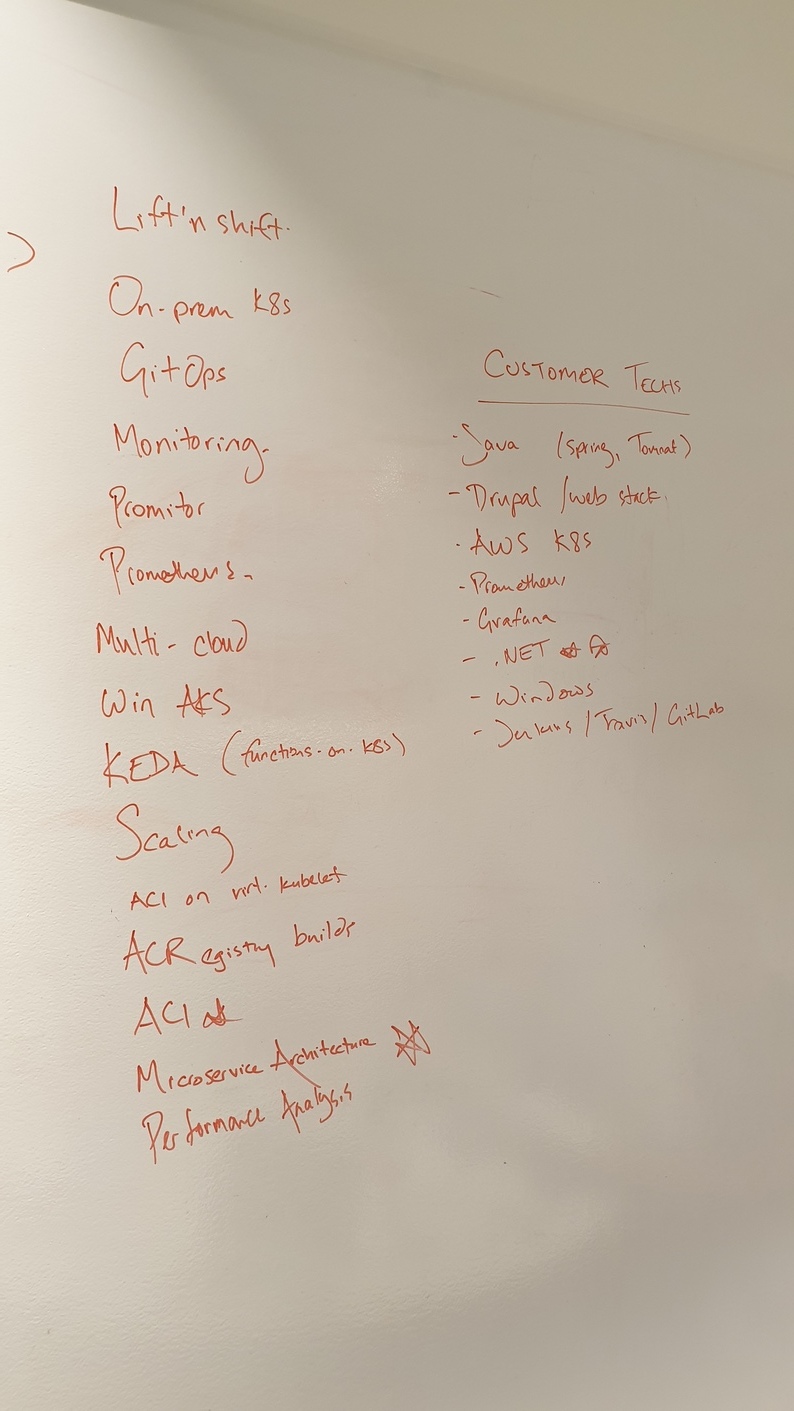 Lift'n shift.
On-prem K8s
GitOps
Monitoring
Promitor
Prometheus
Multi-cloud
Win AKS
KEDA (functions-on-k8s)
Scaling
ACI on virt. kubelet
ACRegistry builds
ACI
Microservice Architecture
Performance Analysis
CUSTOMER TECHS
- Java (Spring, Tomcat)
- Drupal / web stack
- AWS K8s
- Prometheus
- Grafana
- .NET
- Windows
- Jenkins / Travis / GitLab